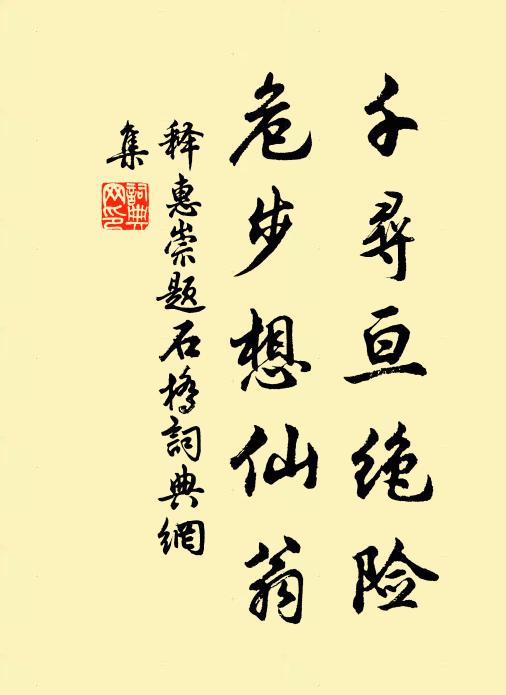 千寻亘绝险
危步想仙翁
释惠崇题石桥詞典網
集
詞典网印